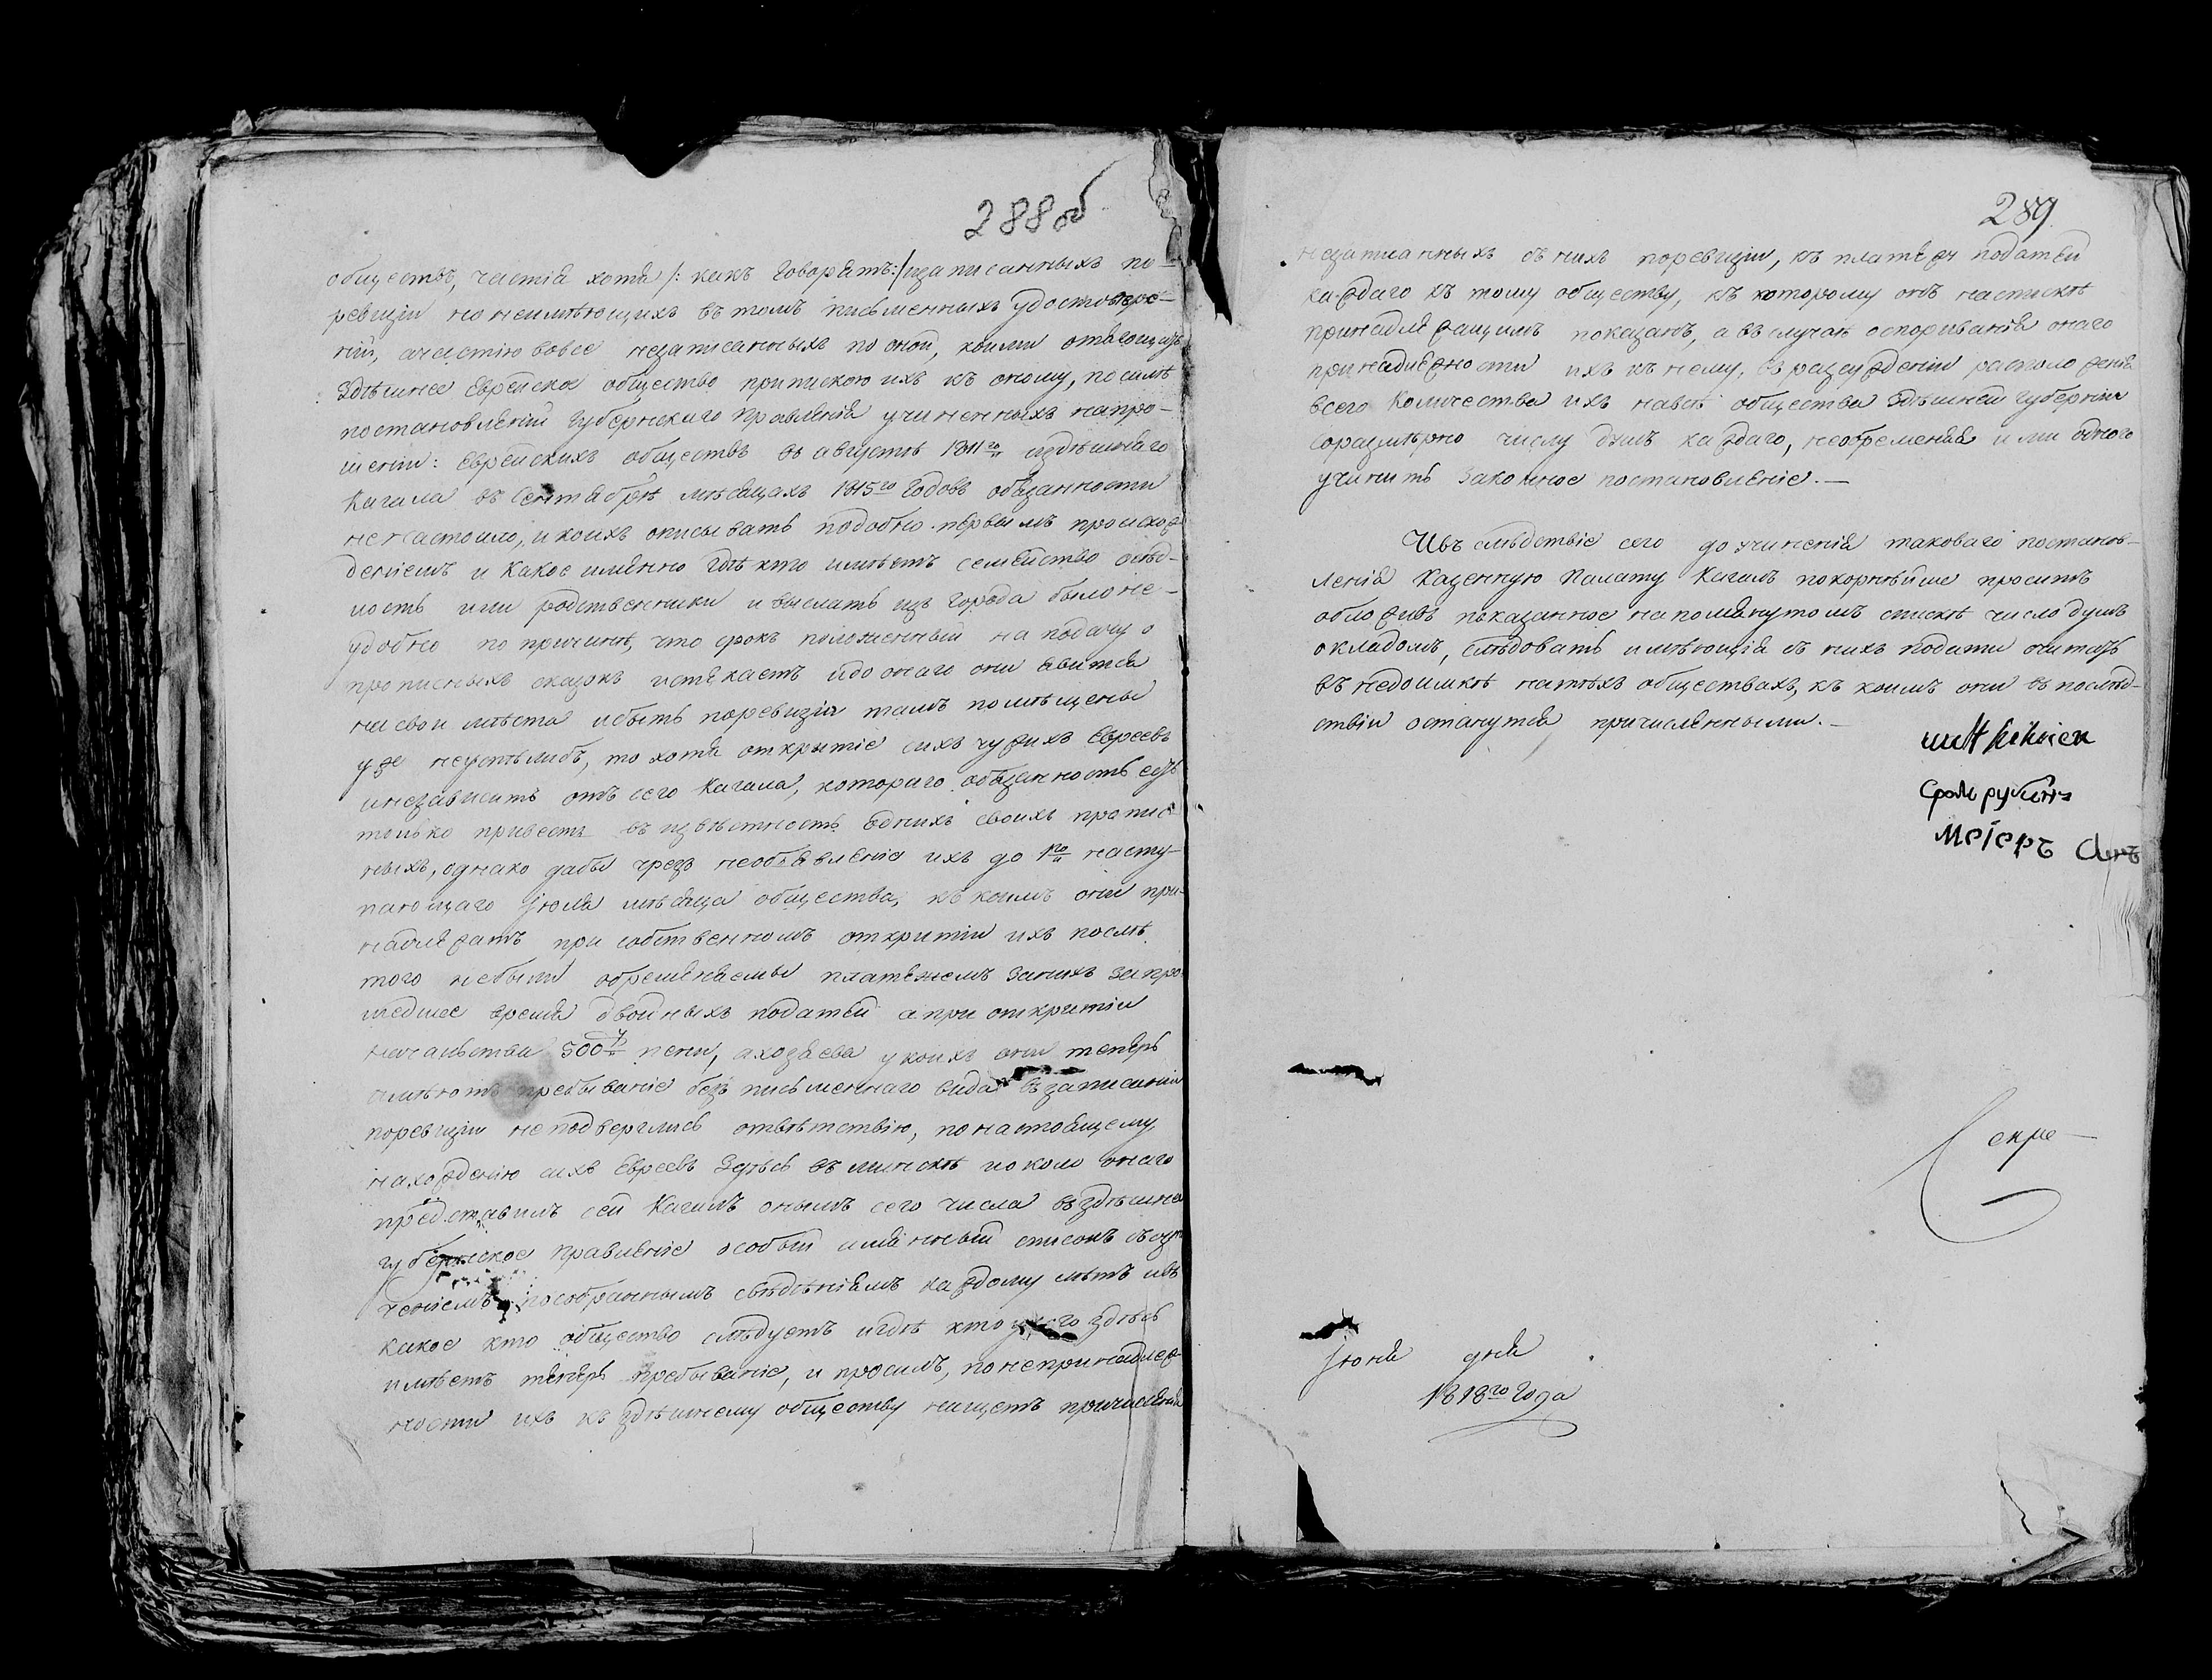 288 об
обществъ, частiю хотя /: какъ говорятъ:/ изаписанныхъ по-
ревизiи но неимѣющихъ въ томъ письменныхъ удостовѣре-
нiй, ачастiю вовсе незаписанныхъ по оной, коими отягощать
здѣшнее Еврейское общество припискою ихъ къ оному, посилѣ
постановленiй Губернскаго Правленiя учиненныхъ напро-
шенiи: Еврейскихъ обществъ въ августѣ 1811го издѣшняго
Кагала въ Сентябрѣ мѣсяцахъ 1815го Годовъ обязанности
ненастоило, и коихъ описывать подобно первымъ происхож-
денiемъ и какое имянно гдѣ кто имѣетъ семейство осѣд-
лость или родственники и высылать изъ города было не-
удобно по причинѣ, что срокъ положенный на подачу о
прописныхъ сказокъ истекаетъ идо онаго они явится
на свои мѣста ибыть поревизiи тамъ помѣщены
уже неуспѣлибъ, то хотя открытiе сихъ чужихъ Евреевъ
инезависитъ отъ сего Кагала, котораго обязанность есть
только привесть въ извѣстность однихъ своихъ пропис-
ныхъ, однако дабы чрезъ необъявленiе ихъ до 1го насту-
пающаго Iюля мѣсяца общества, къ коимъ они при-
надлежатъ при собственномъ открытiи ихъ послѣ
того небыли обременяемы платежемъ заихъ запро-
шедшее время двойныхъ податей апри открытiи
начальства 500 пени, ахозяева укоихъ они теперь
имѣютъ пребыванiе безъ письменнаго вида взаписанiи
поревизiи неподверглись отвѣтствiю, понастоящему
нахожденiю сихъ Евреевъ здѣсь въ Минскѣ иоколо онаго
представилъ сей Кагалъ онымъ сего числа въ здѣшнее
губернское Правленiе особый имянный списокъ
ченiемъ пособраннымъ свѣдѣнiямъ каждому лѣтъ ивъ
какое кто общество слѣдуетъ игдѣ кто укого здѣсь
имѣетъ теперь пребыванiе, и просилъ, понепринадлеж-
ности ихъ къ здѣшнему обществу нащетъ причисленiя
289
незаписанныхъ изъ нихъ поревизiи, къ платежу податей
каждаго къ тому обществу, къ которому онъ насписке
принадлежащимъ показанъ, авъ случаѣ оспориванiя онаго
принадлежности ихъ къ нему, въ разсужденiи расположенiя
всего количества ихъ навсѣ общества здѣшней губернiи
соразмѣрно числу душъ каждаго, необременяя ими одного
учинить законное постановленiе.—
Ивъ слѣдствiе сего до учиненiя таковаго постанов-
ленiя Казенную Палату Кагалъ покорнѣйше проситъ
обложивъ показанное напомянутомъ спискѣ число душъ
окладомъ, слѣдовать имѣющiя съ нихъ подати считать
въ недоимкѣ натѣхъ обществахъ, къ коимъ они въ послѣд-
ствiи останутся причисленными.—
Срол рубинъ
Меiеръ
Секре—
Iюня дня
1818го Года